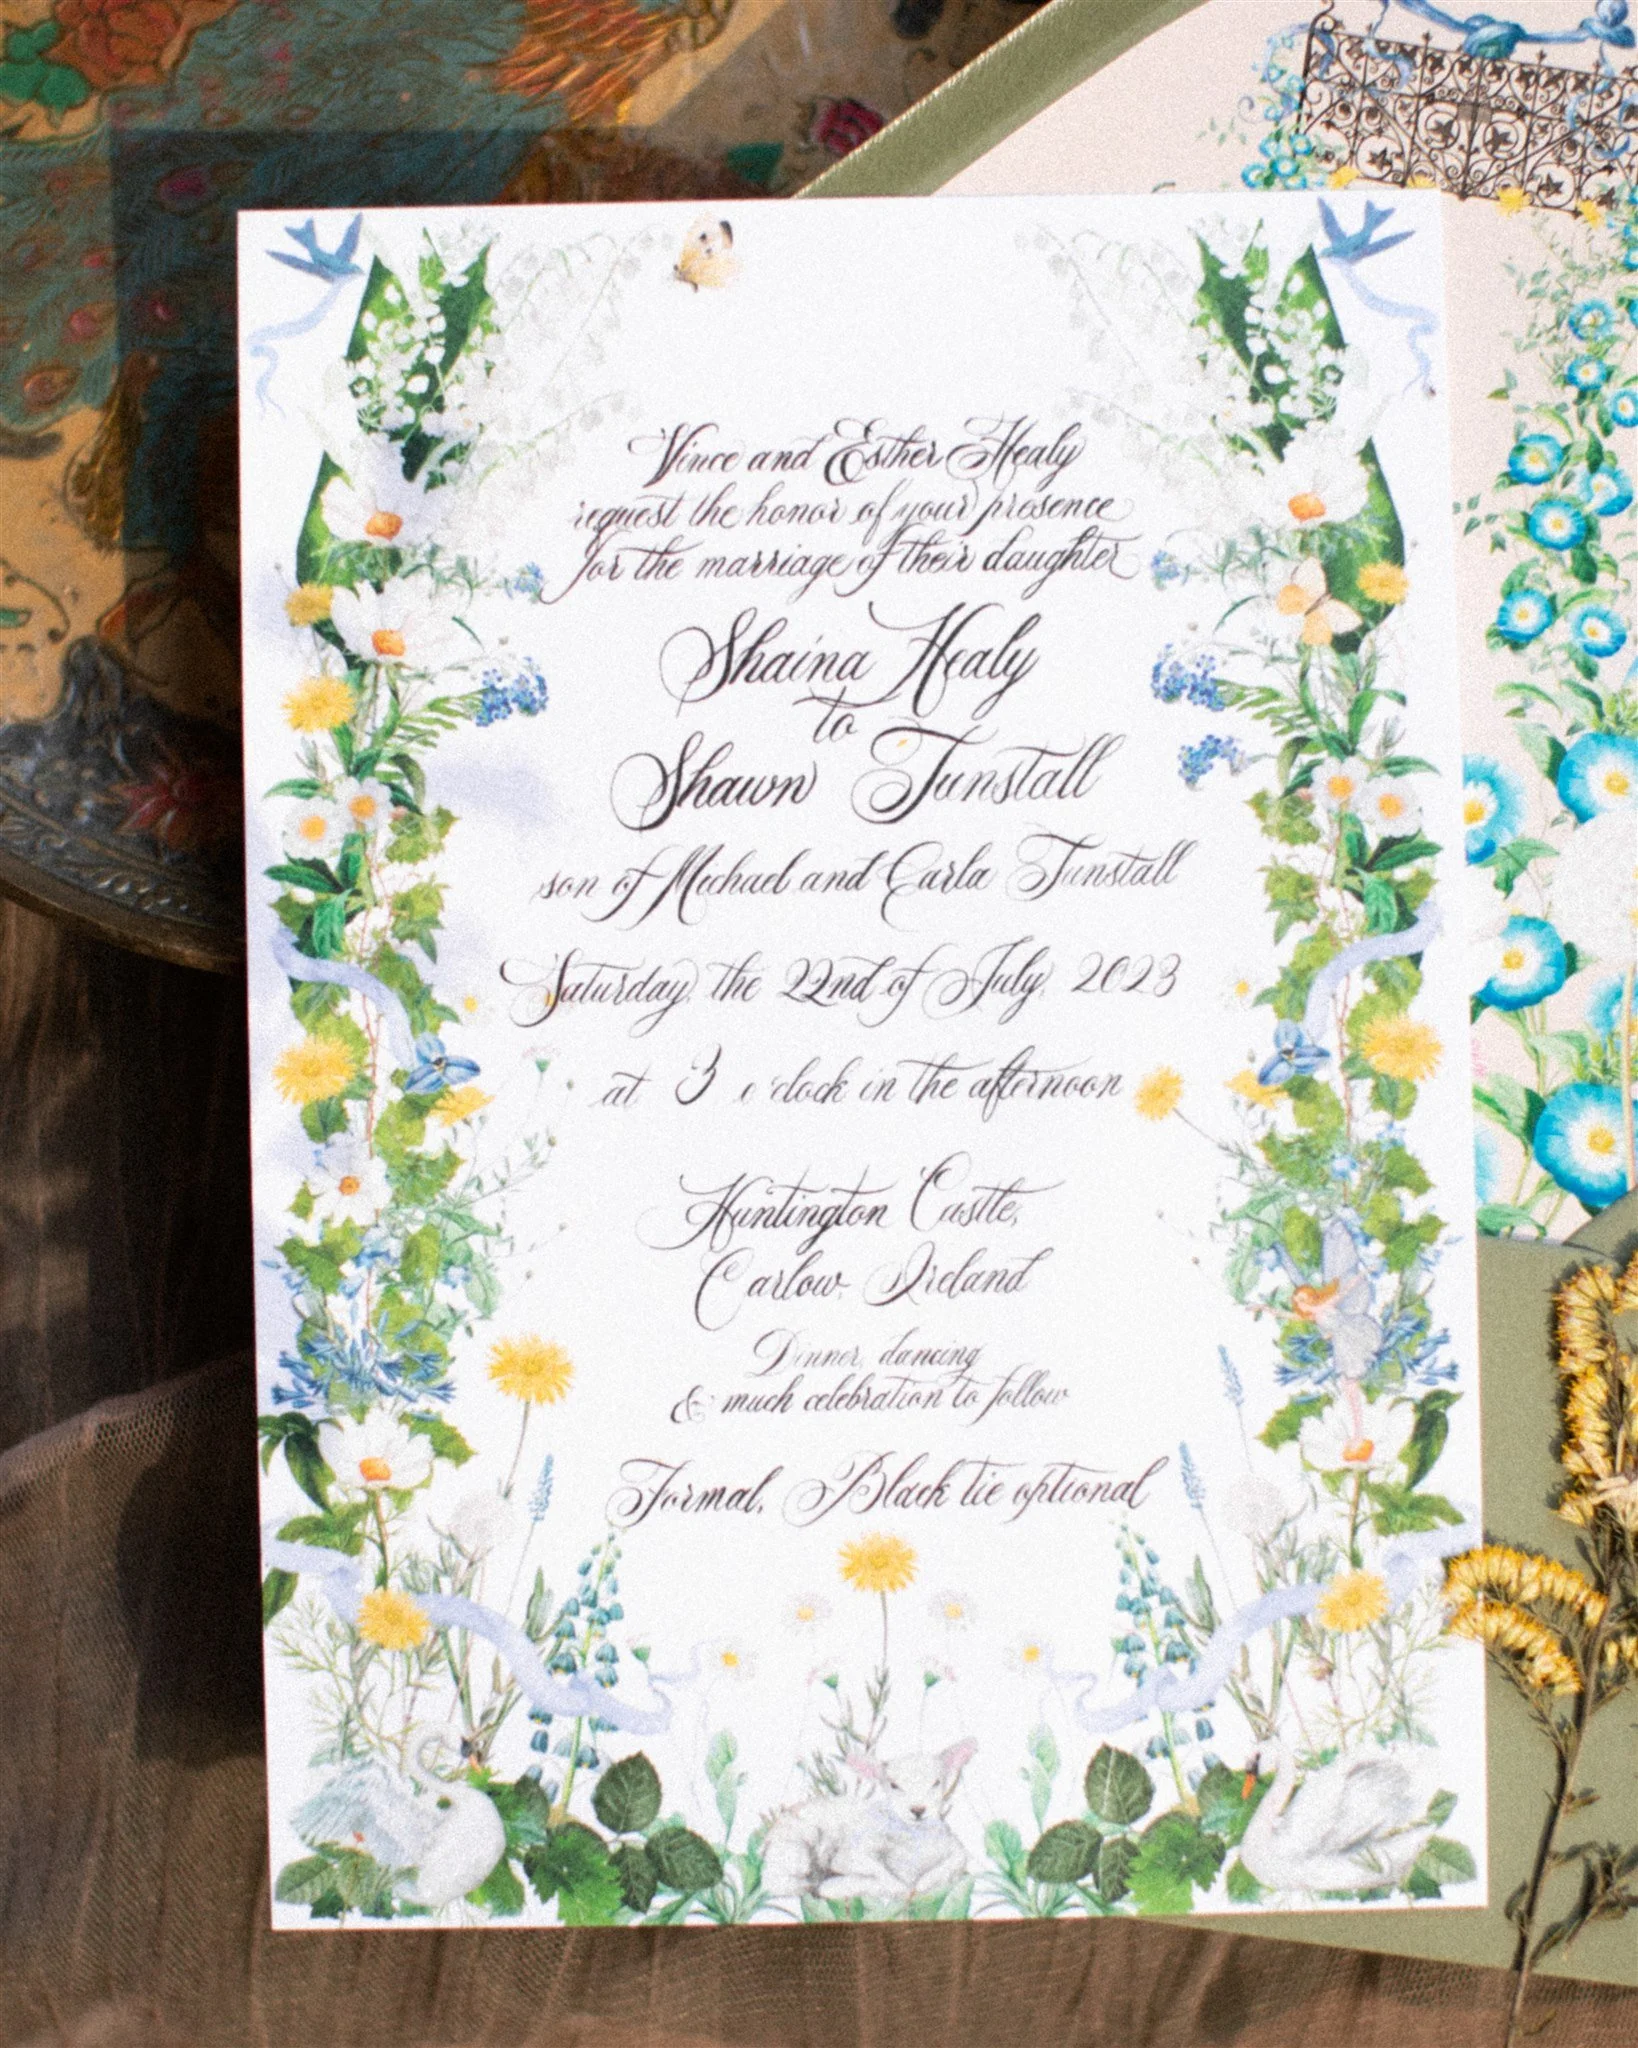 Vince and Esther Healy
request the honor of your presence
for the marriage of their daughter
Shaina Healy
to
Shawn Tunstall
son of Michael and Carla Tunstall
Saturday, the 22nd of July, 2023
at 3 o'clock in the afternoon
Huntington Castle,
Carlow, Ireland
Dinner, dancing
& much celebration to follow
Formal, Black tie optional